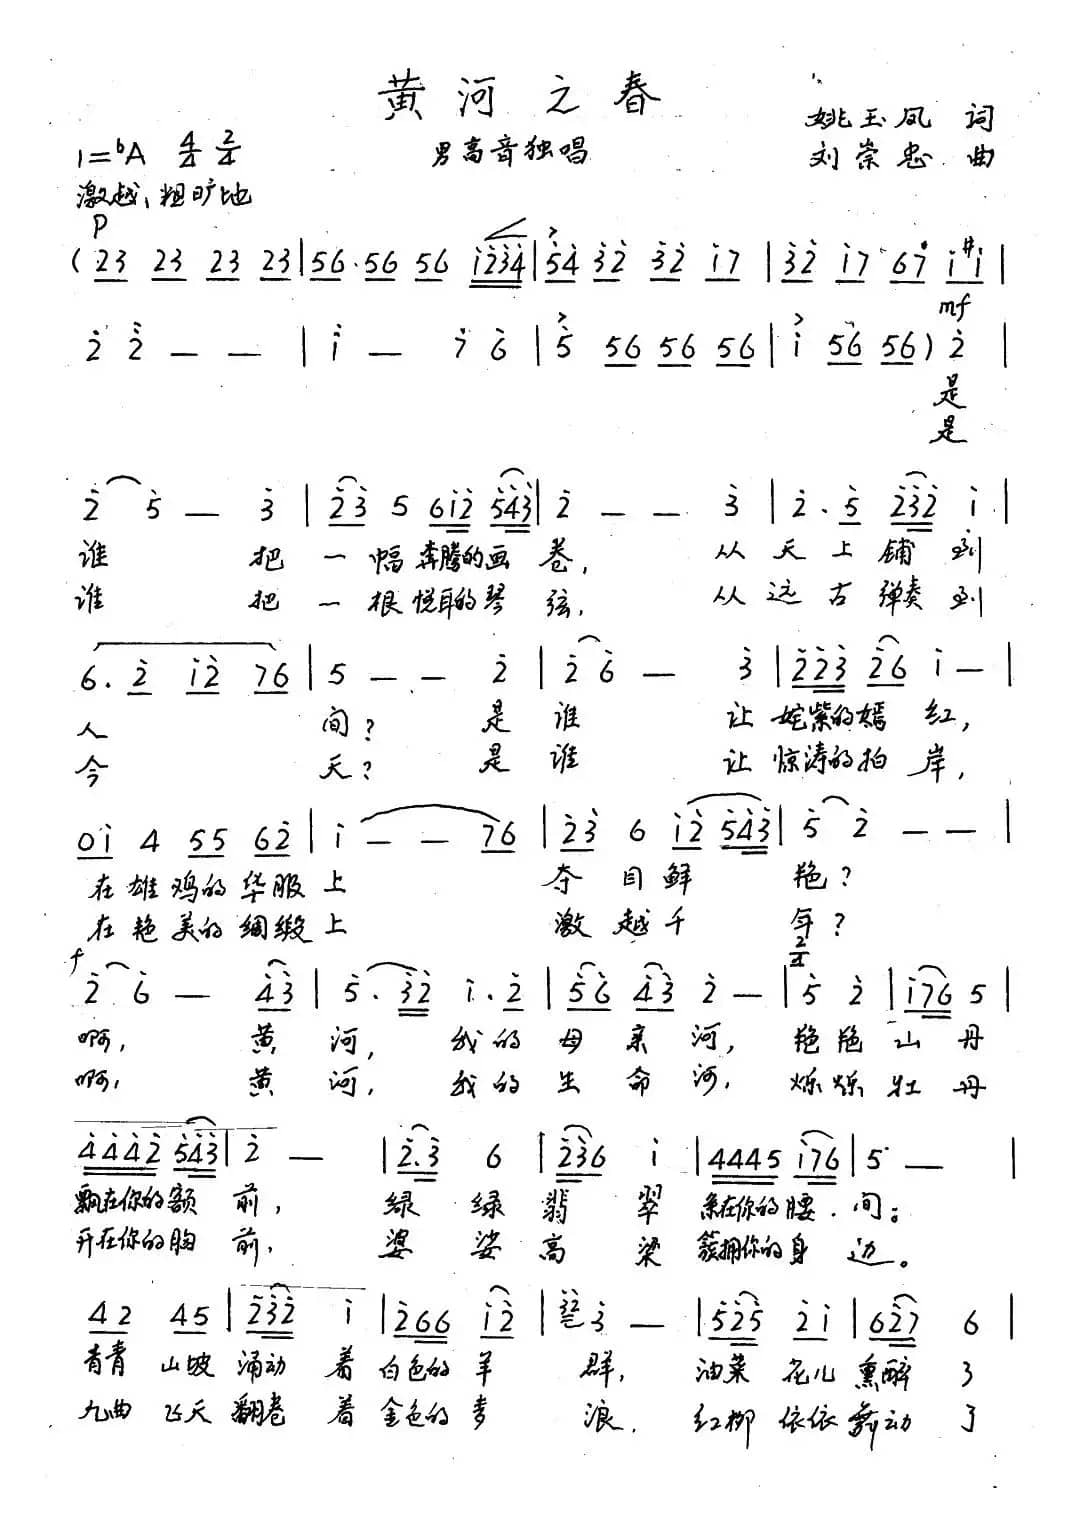 黄河之春
姚玉凤 词
1=♭A 4/4 2/4 男高音独唱 刘崇忠 曲
激越、粗旷地
p
(23 23 23 23|56·56 56 i234|54 32 32 i7|32 i7 67 i #i|
mf
2 2 — —|i — 7 6|5 56 56 56|i 56 56) 2|
是
是
2 5 — 3|23 5 6i2 543|2 — — 3|2. 5 232 i|
谁 把 一 幅 奔腾的画 卷, 从 天 上 铺 到
谁 把 一 根 悦耳的琴 弦, 从 远 古 弹奏 到
6. 2 i2 76|5 — — 2|2 6 — 3|223 26 i —|
人 间? 是 谁 让 姹紫的嫣 红,
今 天? 是 谁 让 惊涛的拍 岸,
0i 4 55 62|i — — 76|23 6 i2 543|5 2 — —|
在 雄 鸡的 华服 上 夺 目 鲜 艳?
在 艳 美的 绸缎 上 激 越 千 年?
f 2/4
2 6 — 43|5. 32 i. 2|56 43 2 —|5 2|i76 5|
啊, 黄 河, 我 的 母 亲 河, 艳 艳 山 丹
啊, 黄 河, 我 的 生 命 河, 烁 烁 牡 丹
4442 543|2 —|2.3 6|236 i|4445 i76|5 —|
飘在你的额 前, 绿 绿 翡 翠 系在你的腰 间;
开在你的胸 前, 婆 娑 高 粱 簇拥你的身 边。
42 45|232 i|266 i2|32 3 —|525 2i|627 6|
青青 山坡 涌动 着 白色的 羊 群, 油菜 花儿 熏醉 了
九曲 飞天 翻卷 着 金色的 麦 浪, 红柳 依依 舞动 了